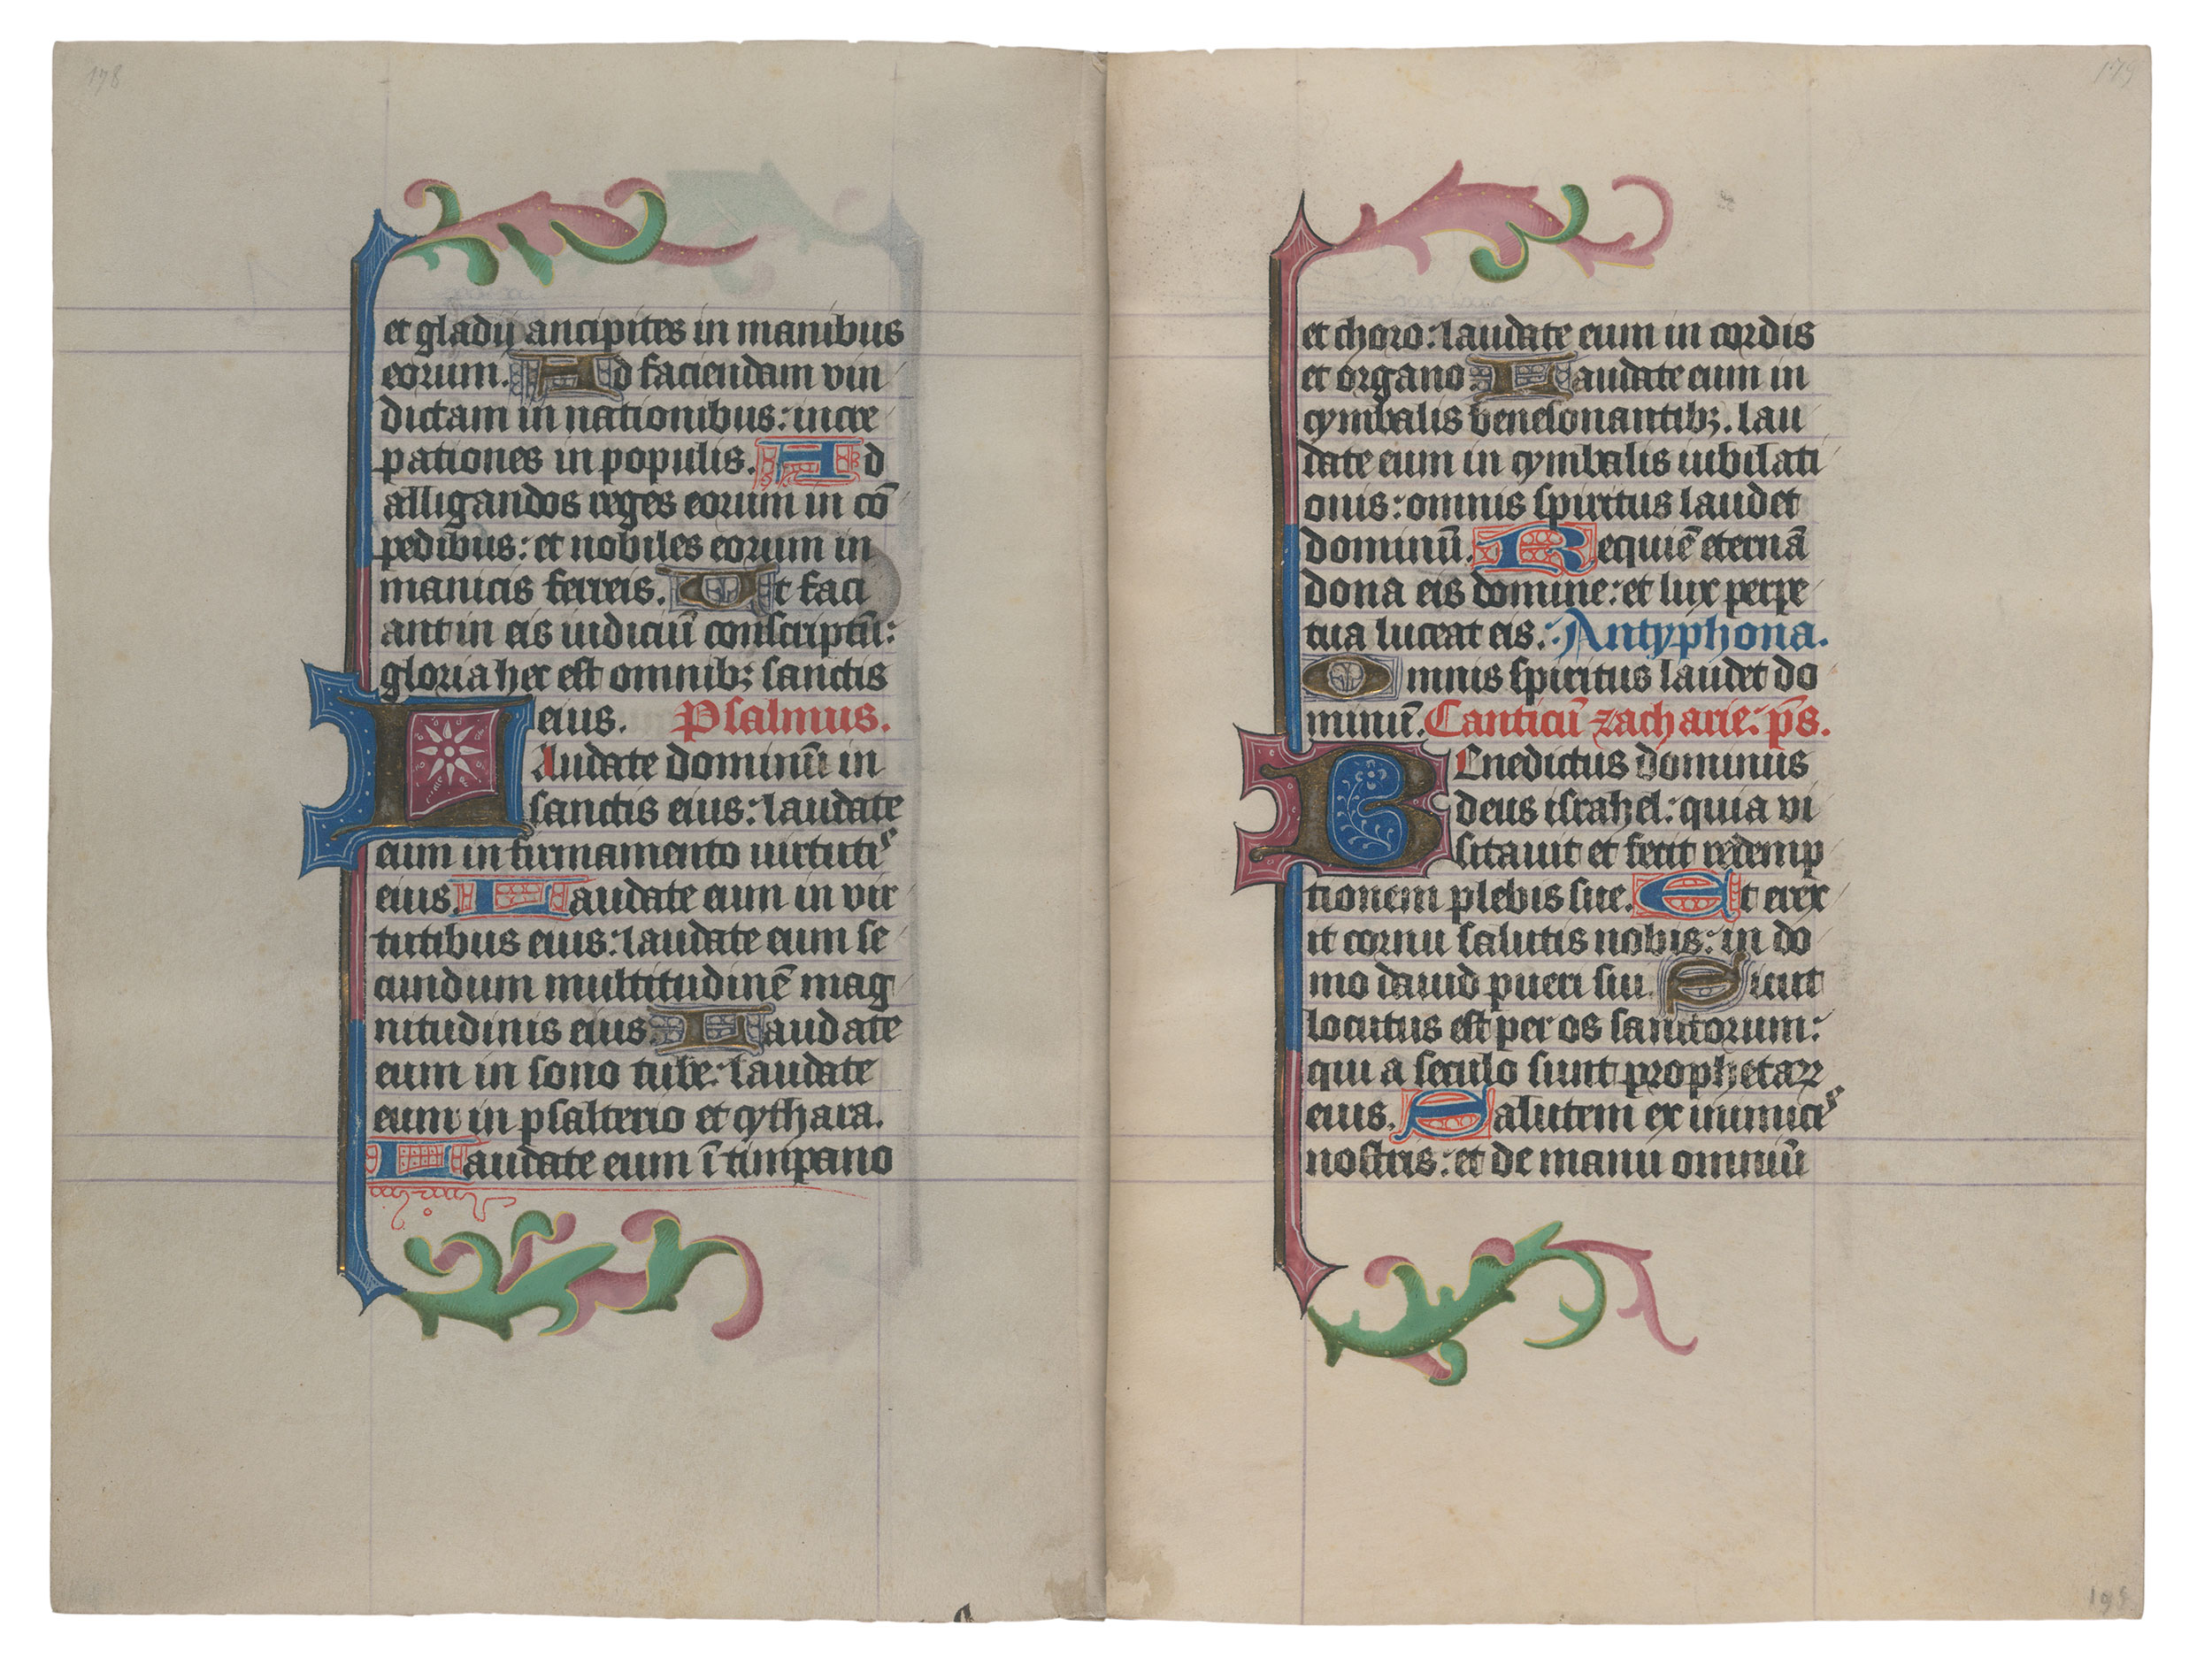 178
et gladij ancipites in manibus
eorum. Ad faciendam vin
dictam in nationibus: incre
pationes in populis. Ad
alligandos reges eorum in cō
pedibus: et nobiles eorum in
manicis ferreis. Ut faci
ant in eis iudiciū conscriptū:
gloria hec est omnibꝫ sanctis
eius. Psalmus.
Laudate dominū in
sanctis eius: laudate
eum in firmamento uirtutis
eius. Laudate eum in vir
tutibus eius: laudate eum se
cundum multitudinē mag
nitudinis eius. Laudate
eum in sono tube: laudate
eum in psalterio et cythara.
Laudate eum ī timpano
179
et choro: laudate eum in cordis
et organo. Laudate eum in
cymbalis benesonantibꝫ. lau
date eum in cymbalis iubilati
onis: omnis spiritus laudet
dominū. Requiē eternā
dona eis domine: et lux perpe
tua luceat eis. Antyphona.
Omnis spiritus laudet do
minū. Canticū zacharie. p̄s.
Benedictus dominus
deus israhel: quia vi
sitauit et fecit redemp
tionem plebis sue. Et erex
it cornu salutis nobis: in do
mo dauid pueri sui. Sicut
locutus est per os sanctorum:
qui a seculo sunt prophetaꝝ
eius. Salutem ex inimicis
nostris: et de manu omniū